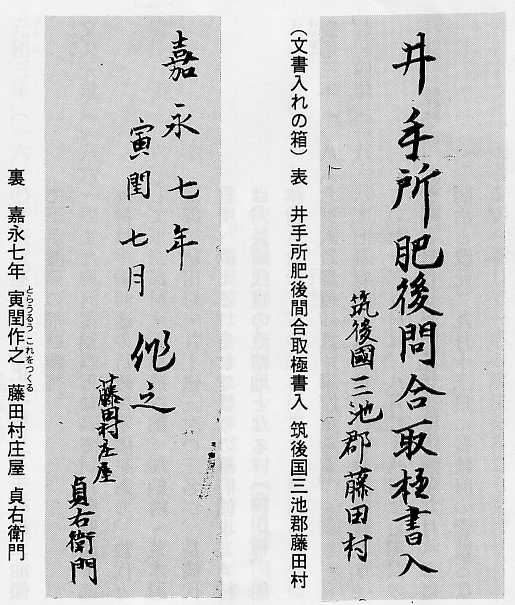 井手所肥後問合取極書入
筑後國三池郡藤田村
(文書入れの箱) 表 井手所肥後間合取極書入 筑後国三池郡藤田村
嘉永七年
寅閏七月 作之
藤田村庄屋
貞右衛門
とらうるう これをつくる
裏 嘉永七年 寅閏作之 藤田村庄屋 貞右衛門